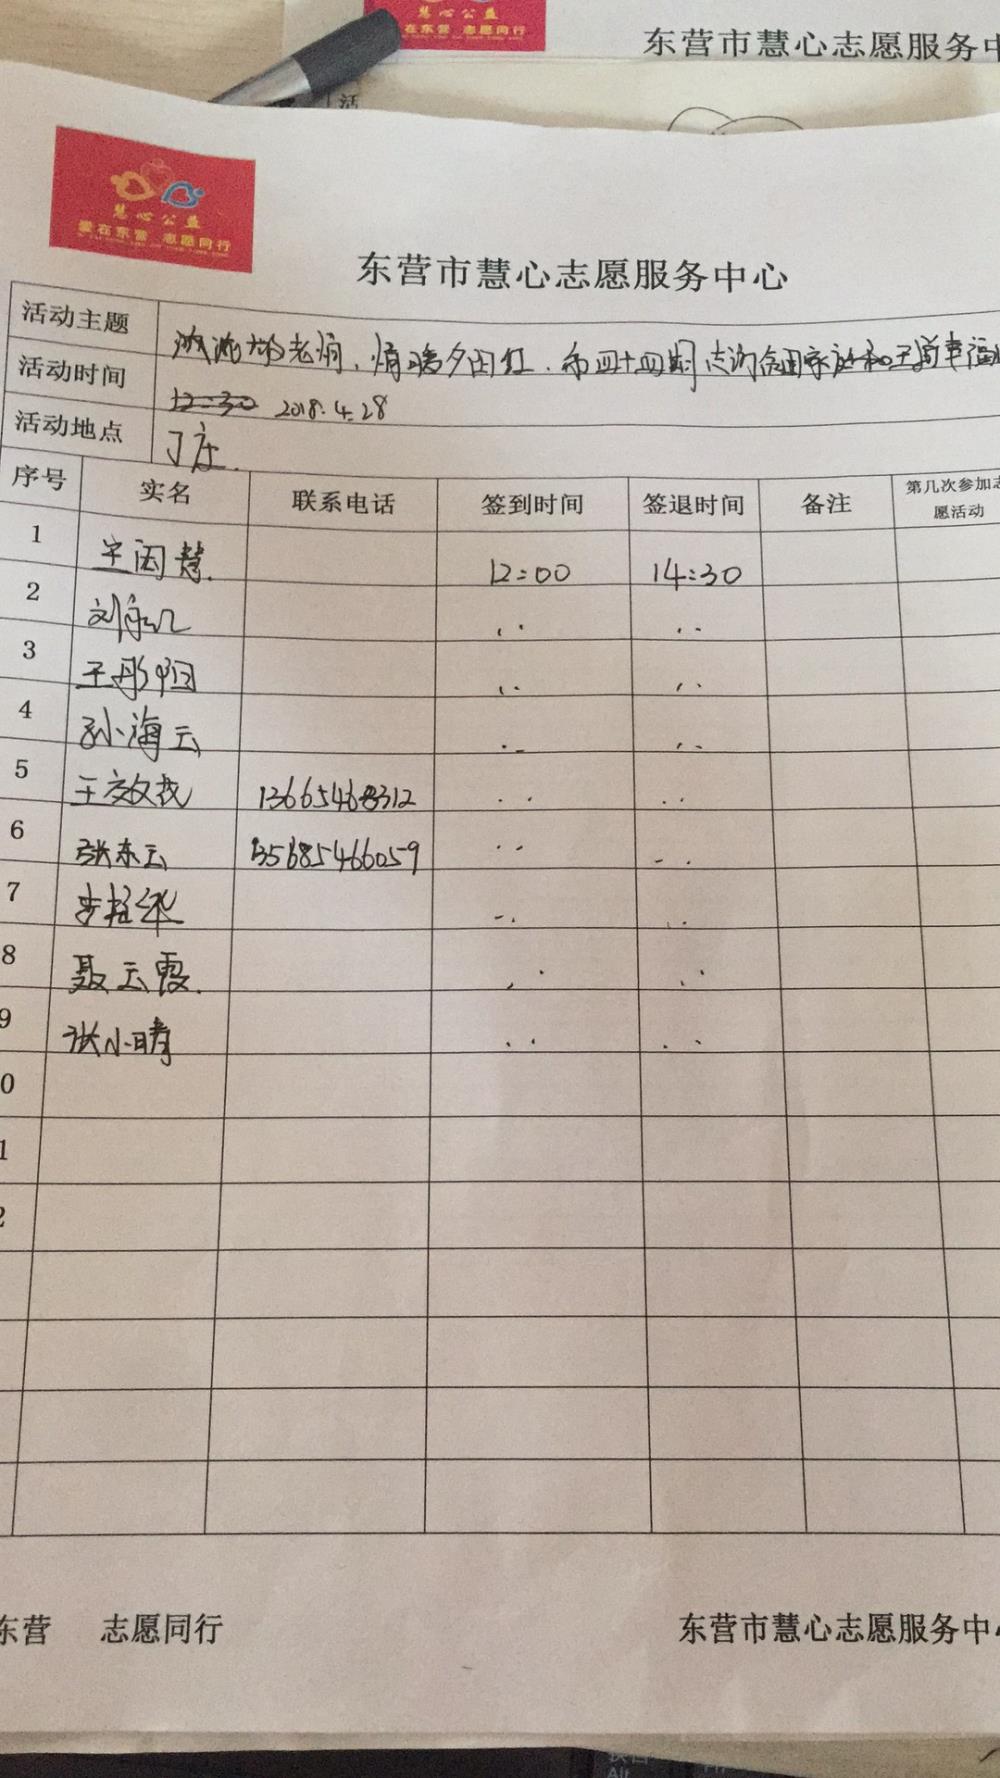 慧心公益
在东营 志愿同行
东营市慧心志愿服务中
活
慧心公益
爱在东营 志愿同行
东营市慧心志愿服务中心
活动主题 老 情暖夕阳红 四十四期
活动时间 12:30 2018.4.28
活动地点 丁庄.
序号 实名 联系电话 签到时间 签退时间 备注 第几次参加志愿活动
1 12:00 14:30
2 刘
3 王彤
4 孙海云
5 王效 13665468312
6 张东云 135685466059
7 李桂华
8 聂云霞.
9 张小晴
0
1
2
东营 志愿同行 东营市慧心志愿服务中心
Alt